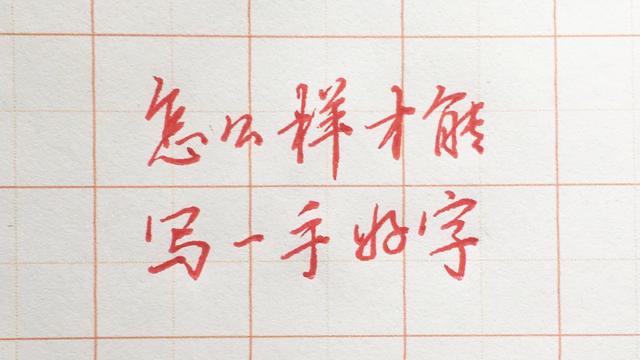 怎么样才能
写一手好字